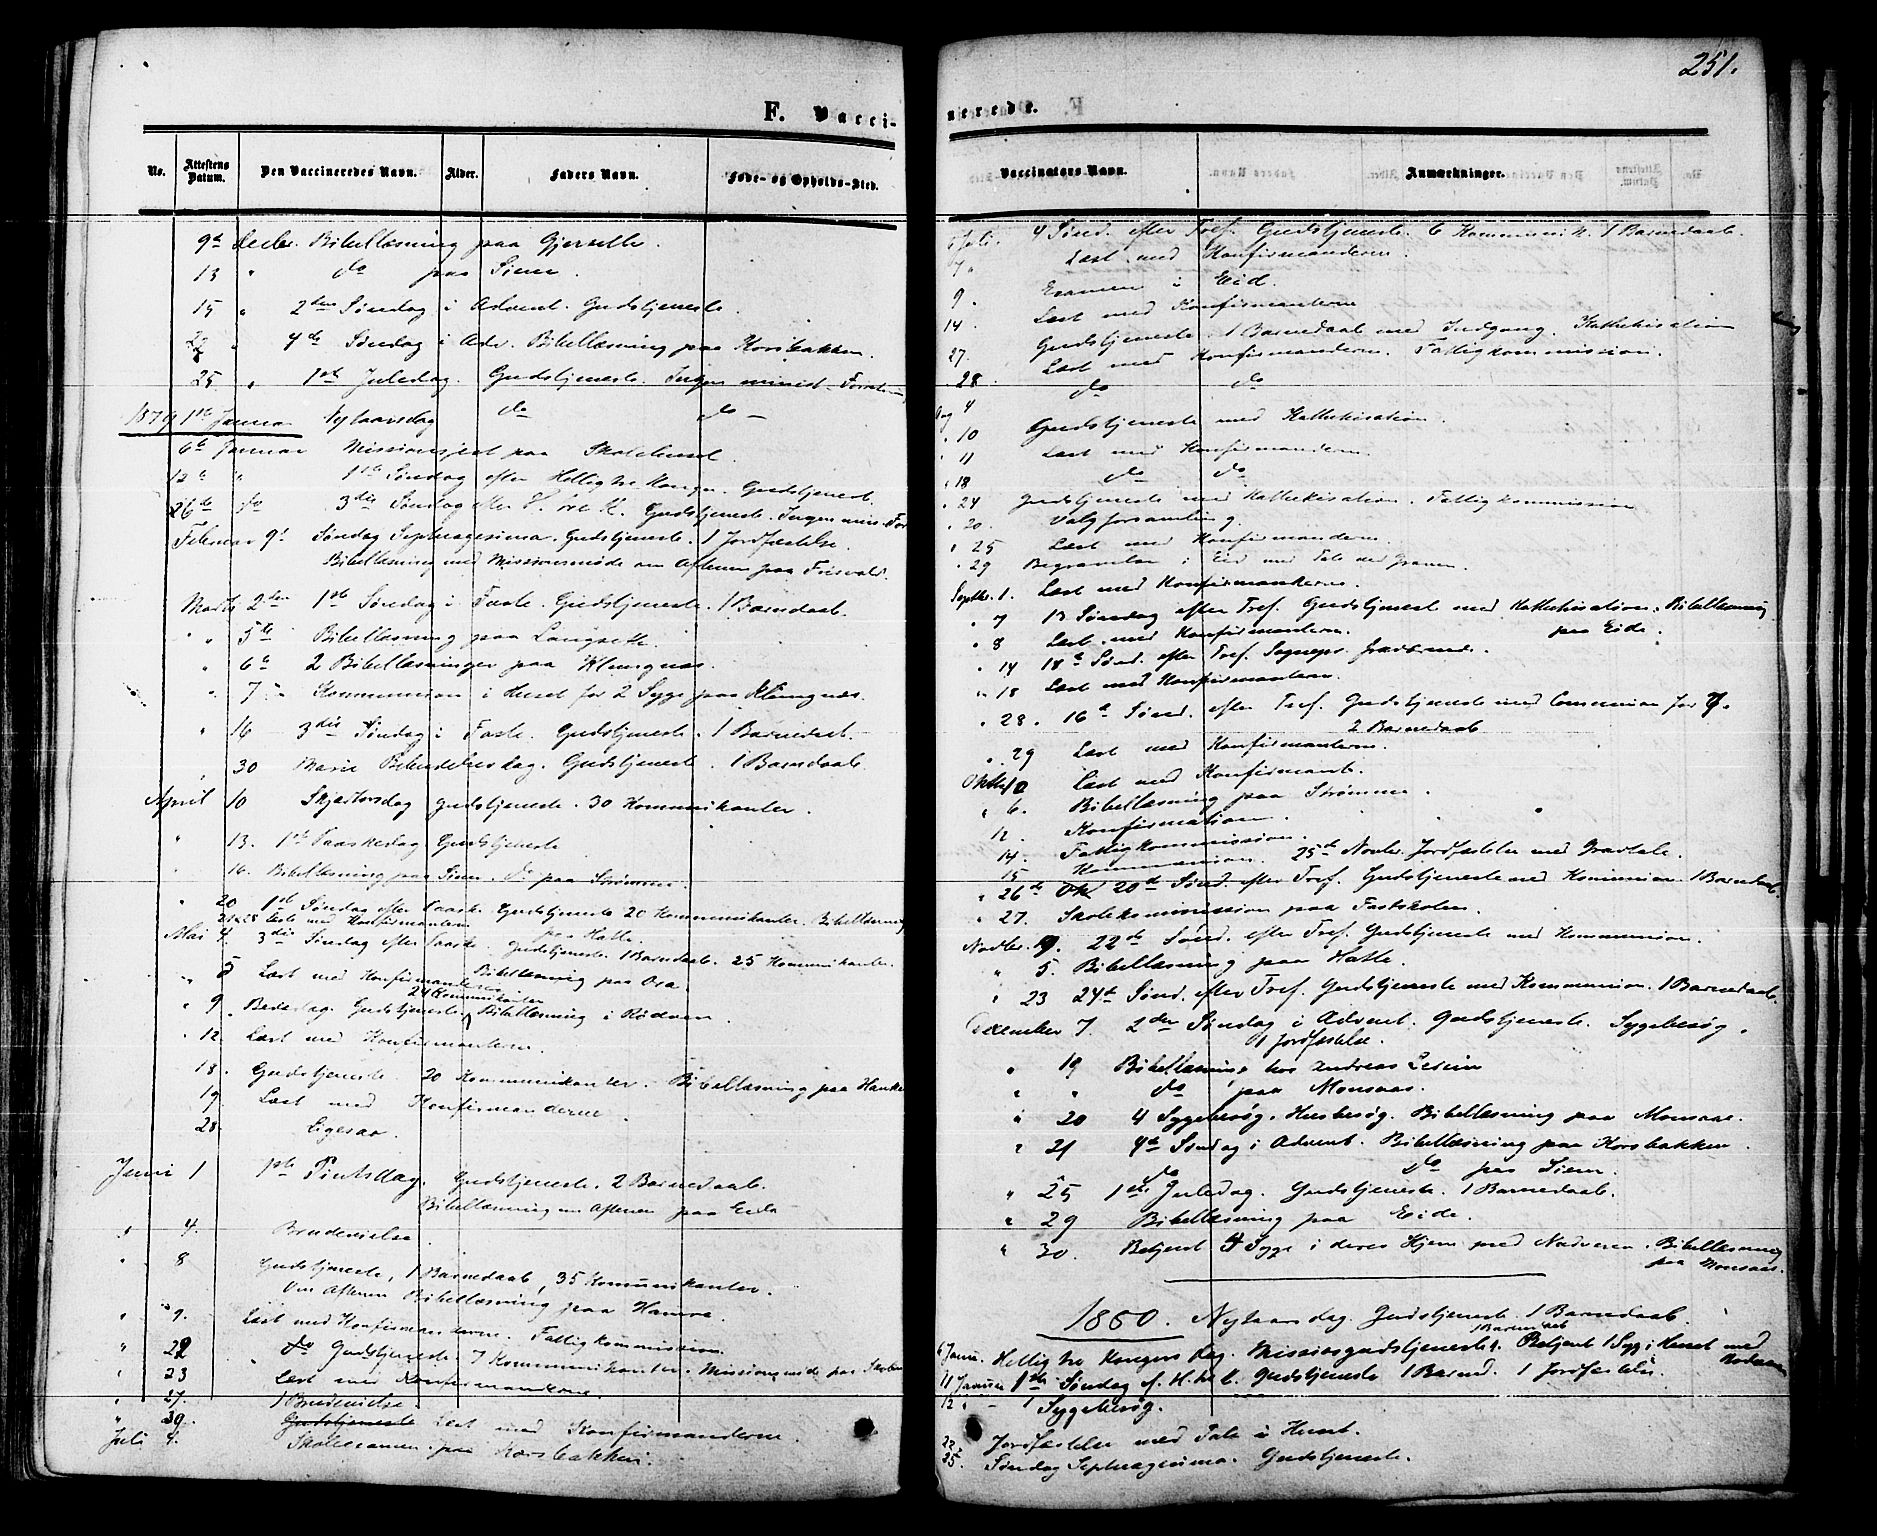 251.
F. Vacci-
nerede.
No.
Attestens Datum.
Den Vaccineredes Navn.
Alder.
Faders Navn.
Føde- og Opholds-Sted.
Vaccinators Navn.
Anmærkninger.
9de Decbr. Bibellæsning paa Gjerseth.
13 " do paa Siem.
15 " 2den Søndag i Advent. Gudstjeneste.
22 " 4de Søndag i Adv. Bibellæsning paa Korsbakken.
25 " 1ste Juledag. Gudstjeneste. Ingen minist. Forretning
1879 1ste Januar Nytaarsdag do do
6te Januar Missionsfest paa Skolehuset.
12te " 1ste Søndag efter Hellig tre Konger. Gudstjeneste.
26de do 3die Søndag efter H. tre K. Gudstjeneste. Ingen min. For
Februar 9de Søndag Septuagesima. Gudstjeneste. 1 Jordfæstelse.
Bibellæsning med Missionsmøde om Aftenen paa Frisvold.
Marts 2den 1ste Søndag i Faste. Gudstjeneste. 1 Barnedaab.
" 5te Bibellæsning paa Langseth.
" 6te 2 Bibellæsninger paa Klungnæs.
" 7de Kommunion i Huset for 2 Syge paa Klungnæs.
" 16 3die Søndag i Faste. Gudstjeneste. 1 Barnedaab.
" 30 Mariæ Bebudelsesdag. Gudstjeneste. 1 Barnedaab.
April 10 Skjærtorsdag Gudstjeneste. 30 Kommunikanter.
" 13. 1ste Paaskedag Gudstjeneste
" 16. Bibellæsning paa Siem. do paa Strømme.
" 20 1ste Søndag efter Paaske. Gudstjeneste 20 Kommunikanter. Bibellæsning
paa Hatle.
21 & 28 Læste med Konfirmanterne
Mai 4. 3die Søndag efter Paaske. Gudstjeneste. 1 Barnedaab. 25 Kommunikanter.
" 5 Læst med Konfirmanterne Bibellæsning paa Ora.
" 9. Bededag. Gudstjeneste 24 Kommunikanter Bibellæsning i Rødven.
" 12. Læst med Konfirmanterne.
18. Gudstjeneste 20 Kommunikanter. Bibellæsning paa
19. Læst med Konfirmanderne.
28. Ligesaa.
Juni 1 1ste Pintsdag. Gudstjeneste. 2 Barnedaab.
Bibellæsning om Aftenen paa Eide
" 4. Brudevielse.
" 8 Gudstjeneste, 1 Barnedaab, 35 Kommunikanter.
Om Aftenen Bibellæsning paa Hamre.
" 9. Læst med Konfirmanderne. Fattigkommission.
" 22 do Gudstjeneste. 7 Kommunikanter. Missionsmøde paa
" 23 Læst med Konfirmanderne.
" 27. 1 Brudevielse
" 30. Gudstjeneste Læst med Konfirmanderne.
Juli 4. Skoleexamen paa Korsbakken.
Juli. 4 Sønd. efter Tref. Gudstjeneste. 6 Kommunik. 1 Barnedaab.
7 " Læst med Konfirmanderne.
9. Examen i Eid.
14. Læst med Konfirmanterne
27. Gudstjeneste. 1 Barnedaab med Indgang. Kathekisation
28 Læst med Konfirmanderne. Fattigkommission.
Aug 4 do do
" 10 Gudstjeneste med Kathekisation.
" 11 Læst med Konfirmanderne.
" 18 do do
" 24 Gudstjeneste med Kathekisation. Fattigkommission
" 20. Valgforsamling.
" 25 Læst med Konfirmanderne.
" 29 Begravelse i Eid med Tale ved Graven.
Septbr. 1. Læst med Konfirmanterne.
" 7 13 Søndag efter Tref. Gudstjeneste med Kathekisation. Bibellæsning
paa Eide.
" 8 Læst med Konfirmanterne.
" 14 18de Sønd. efter Tref. Sognepr.
" 18 Læst med Konfirmanterne.
" 28. 16de Sønd. efter Tref. Gudstjeneste med Communion for 7.
2 Barnedaab
" 29 Læst med Konfirmanterne.
Oktbr Læst med Konfirmant.
" 6. Bibellæsning paa Strømme.
12. Konfirmation.
14. Fattigkommission.
15 Kommunion. 25de Novbr. Jordfæstelse med Gravtale.
" 26de Okt 20de Sønd. efter Tref. Gudstjeneste med Kommunion. 1 Barnedaab.
" 27. Skolekommission paa Fastskolen.
Novbr. 9. 22de Sønd. efter Tref. Gudstjeneste med Kommunion.
" 5. Bibellæsning paa Hatle.
" 23 24de Sønd. efter Tref. Gudstjeneste med Kommunion. 1 Barnedaab.
December 7. 2den Søndag i Advent. Gudstjeneste. Sygebesøg.
1 Jordfæstelse.
" 19 Bibellæsning hos Andreas
" " do paa Monsaas.
" 20 4 Sygebesøg. Husbesøg. Bibellæsning paa Monsaas.
" 21 4de Søndag i Advent. Bibellæsning paa Korsbakken.
do do paa Siem.
" 25 1ste Juledag. Gudstjeneste. 1 Barnedaab.
" 29 Bibellæsning paa Eide.
" 30. Betjent 4 Syge i deres Hjem med Nadveren. Bibellæsning
paa Monsaas.
1880. Nytaarsdag. Gudstjeneste 1 Barnedaab.
6 Janu. Hellig tre Kongers Dag. Missionsgudstjeneste. 1 Barnedaab Betjent 1 Syg i Huset med
Nadveren
11 Januar 1ste Søndag e. H. tre K. Gudstjeneste 1 Barned. 1 Jordfæstelse.
12 " - 1 Sygebesøg.
22. Jordfæstelse med Tale i Huset.
25. Søndag Septuagesima. Gudstjeneste.